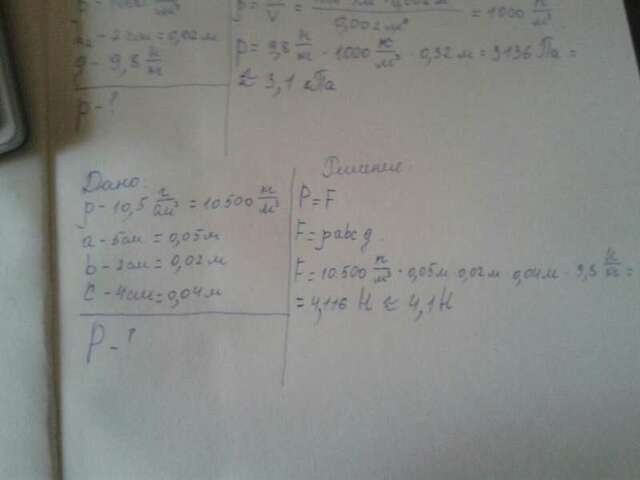 0,002 м³ = 1000
h₂ - 2 см = 0,02 м
g - 9,8 н/кг
p - ?
p = 9,8 н/кг · 1000 кг/м³ · 0,32 м = 3136 Па =
≈ 3,1 кПа
Дано:
p - 10,5 г/см³ = 10500 кг/м³
a - 5 см = 0,05 м
b - 2 см = 0,02 м
c - 4 см = 0,04 м
P - ?
Решение:
P = F
F = pabcg.
F = 10500 кг/м³ · 0,05 м · 0,02 м · 0,04 м · 9,8 н/кг =
= 4,116 Н ≈ 4,1 Н